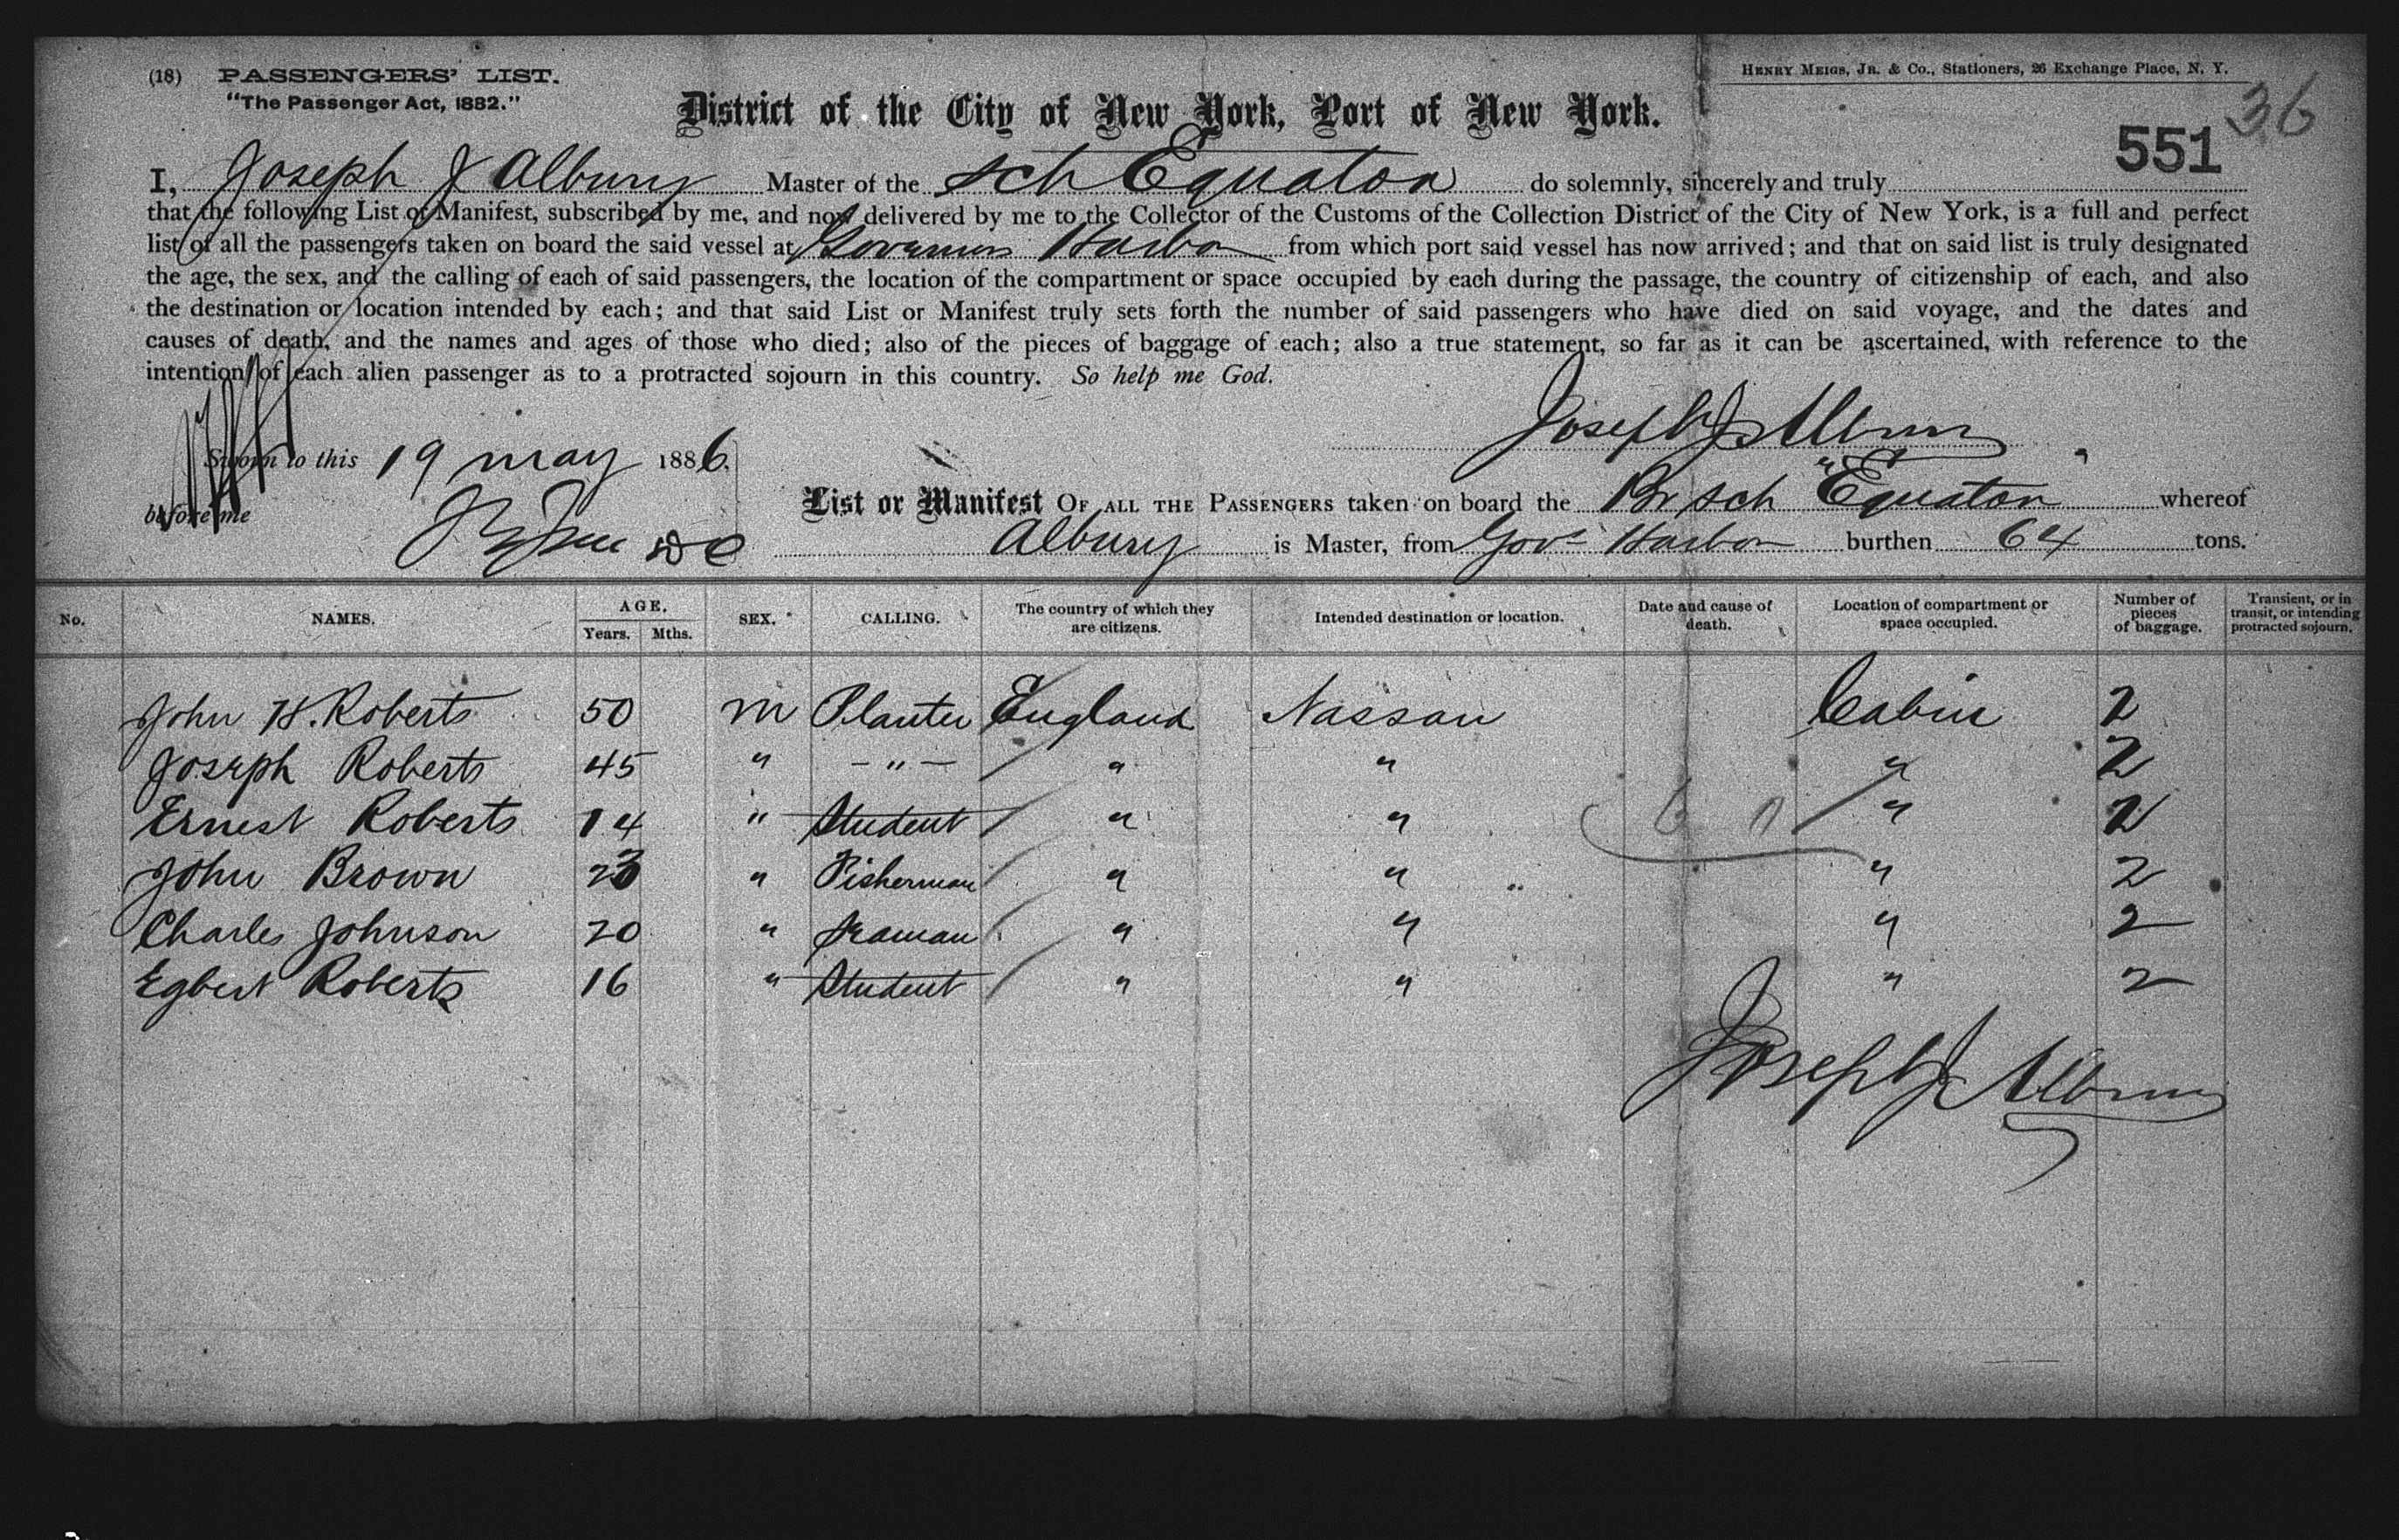 (18) PASSENGERS' LIST.
"The Passenger Act, 1882."
HENRY MEIGS, JR. & CO., Stationers, 26 Exchange Place, N. Y.
District of the City of New York, Port of New York.
36
551
I, Joseph J Albury Master of the Sch Equator do solemnly, sincerely and truly
that the following List or Manifest, subscribed by me, and now delivered by me to the Collector of the Customs of the Collection District of the City of New York, is a full and perfect
list of all the passengers taken on board the said vessel at Governors Harbor from which port said vessel has now arrived; and that on said list is truly designated
the age, the sex, and the calling of each of said passengers, the location of the compartment or space occupied by each during the passage, the country of citizenship of each, and also
the destination or location intended by each; and that said List or Manifest truly sets forth the number of said passengers who have died on said voyage, and the dates and
causes of death, and the names and ages of those who died; also of the pieces of baggage of each; also a true statement, so far as it can be ascertained, with reference to the
intention of each alien passenger as to a protracted sojourn in this country. So help me God.
Joseph J Albury
Sworn to this 19 May 1886.
before me
DC
List or Manifest OF ALL THE PASSENGERS taken on board the Br Sch "Equator" whereof
Albury is Master, from Govs Harbor burthen 64 tons.
No. NAMES. AGE. Years. Mths. SEX. CALLING. The country of which they are citizens. Intended destination or location. Date and cause of death. Location of compartment or space occupied. Number of pieces of baggage. Transient, or in transit, or intending protracted sojourn.
John H. Roberts 50 M Planter England Nassau Cabin 2
Joseph Roberts 45 " - " - " " " 2
Ernest Roberts 14 " Student " " " 2
John Brown 23 " Fisherman " " " 2
Charles Johnson 20 " Seaman " " " 2
Egbert Roberts 16 " Student " " " 2
Joseph J Albury